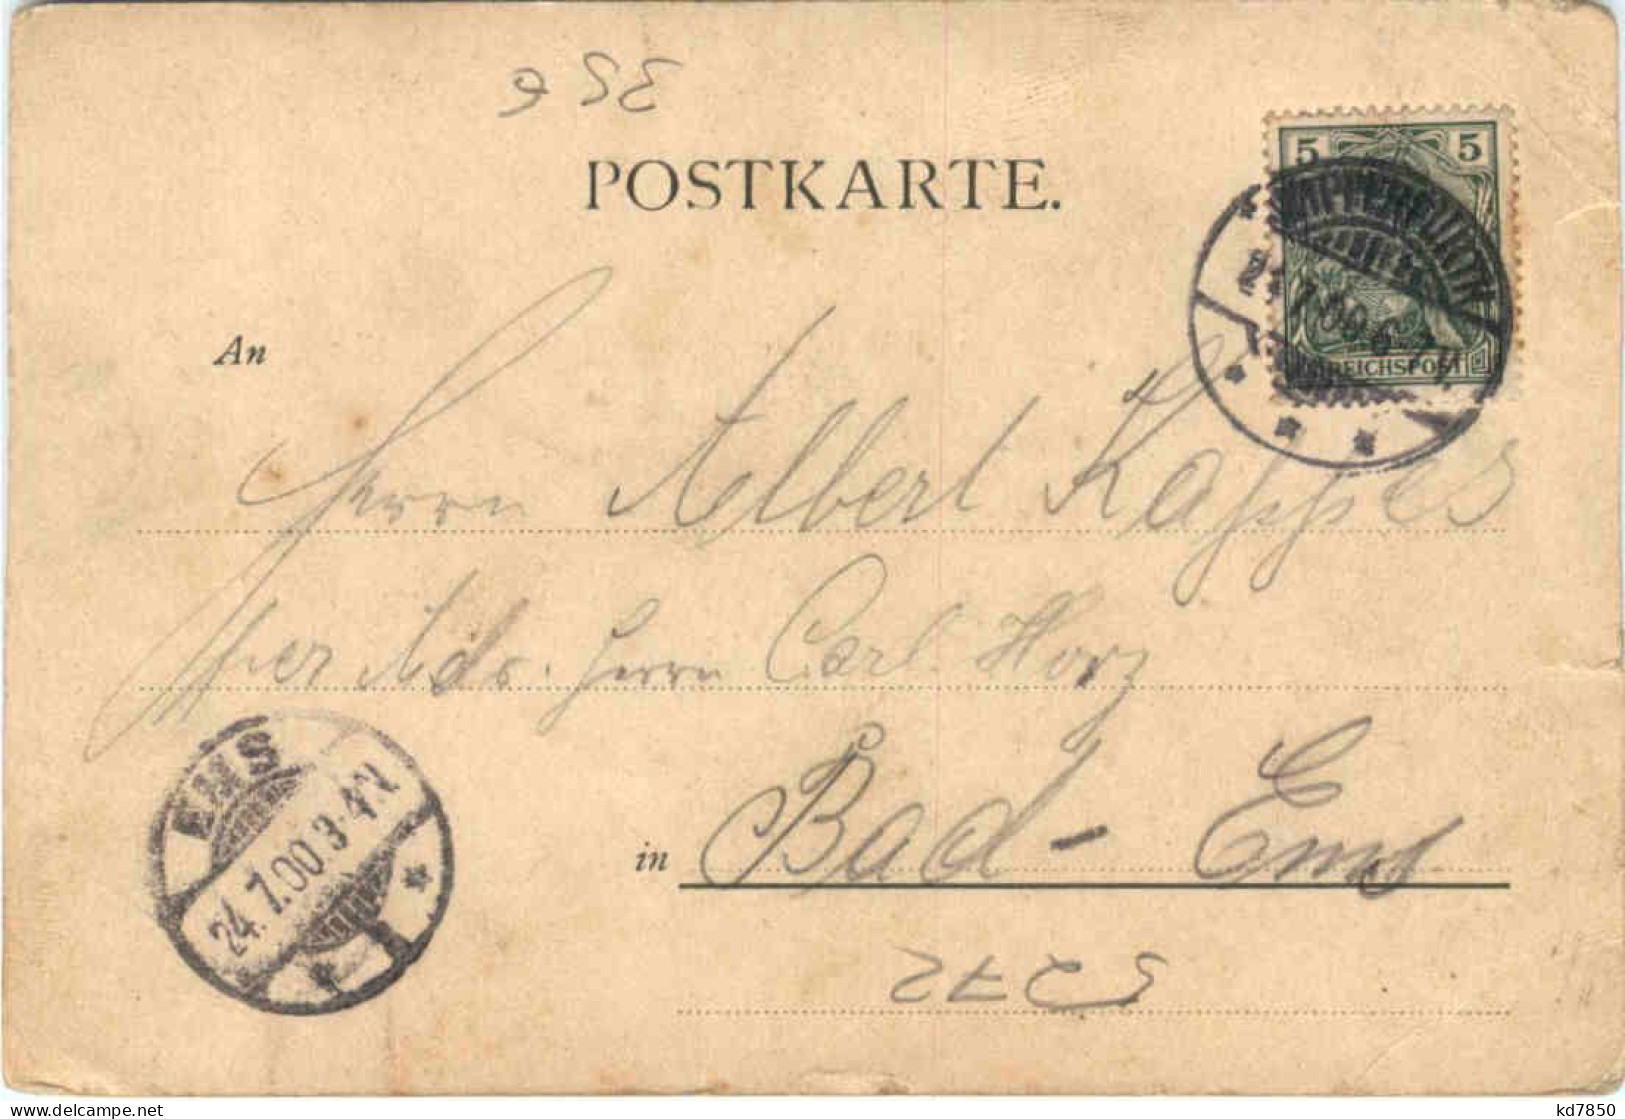 POSTKARTE.
5 5
REICHSPOST
An
Herrn Albert Kappes
per Adr. Herrn Carl Horz
in Bad-Ems
EMS
24.7.00.3-4N
5272
www.delcampe.net
kd7850